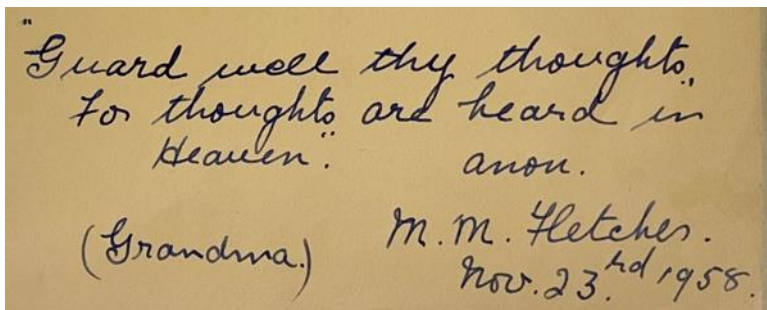 "Guard well thy thoughts,
For thoughts are heard in
Heaven". anon.
(Grandma.) M. M. Fletcher.
Nov. 23rd 1958.